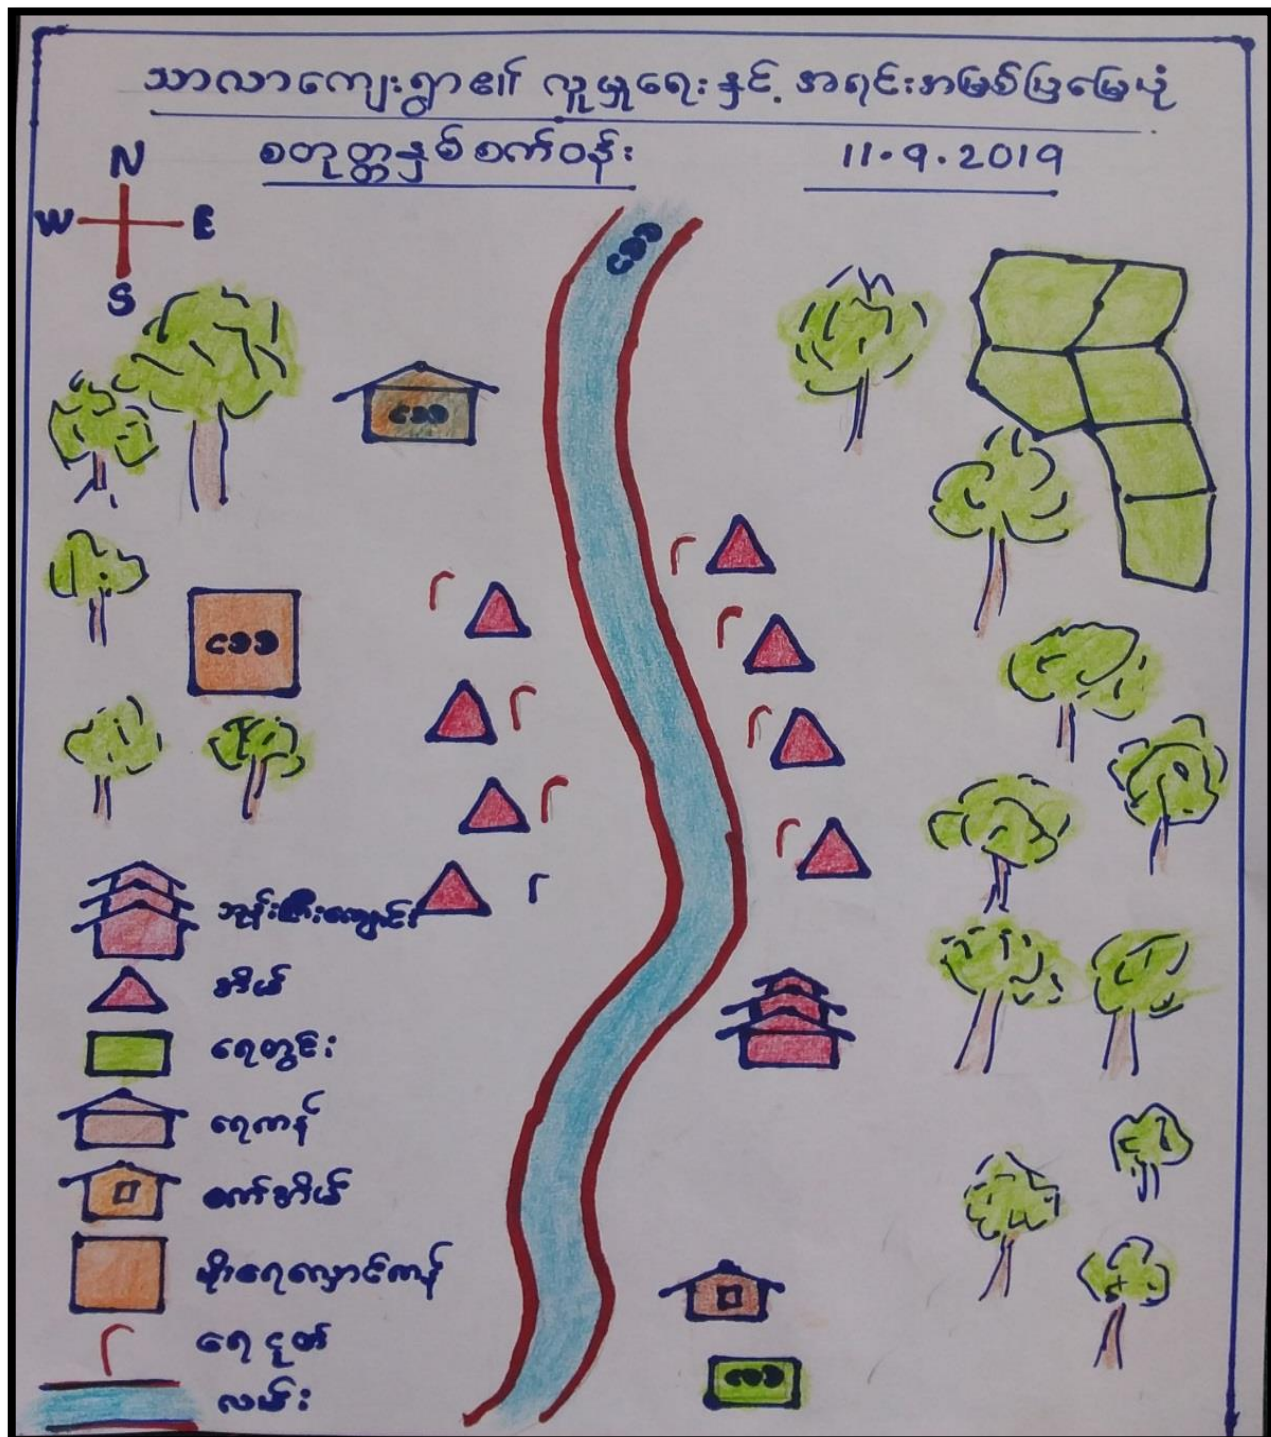 သာလာကျေးရွာ၏ လူမှုရေးနှင့် အရင်းအမြစ်ပြမြေပုံ
စတုတ္ထနှစ်စက်ဝန်း 11.9.2019
N
W E
S
ဘုန်းကြီးကျောင်း
အိမ်
ရေတွင်း
ရေကန်
စက်အိမ်
မိုးရေလှောင်ကန်
ရေငုတ်
လမ်း